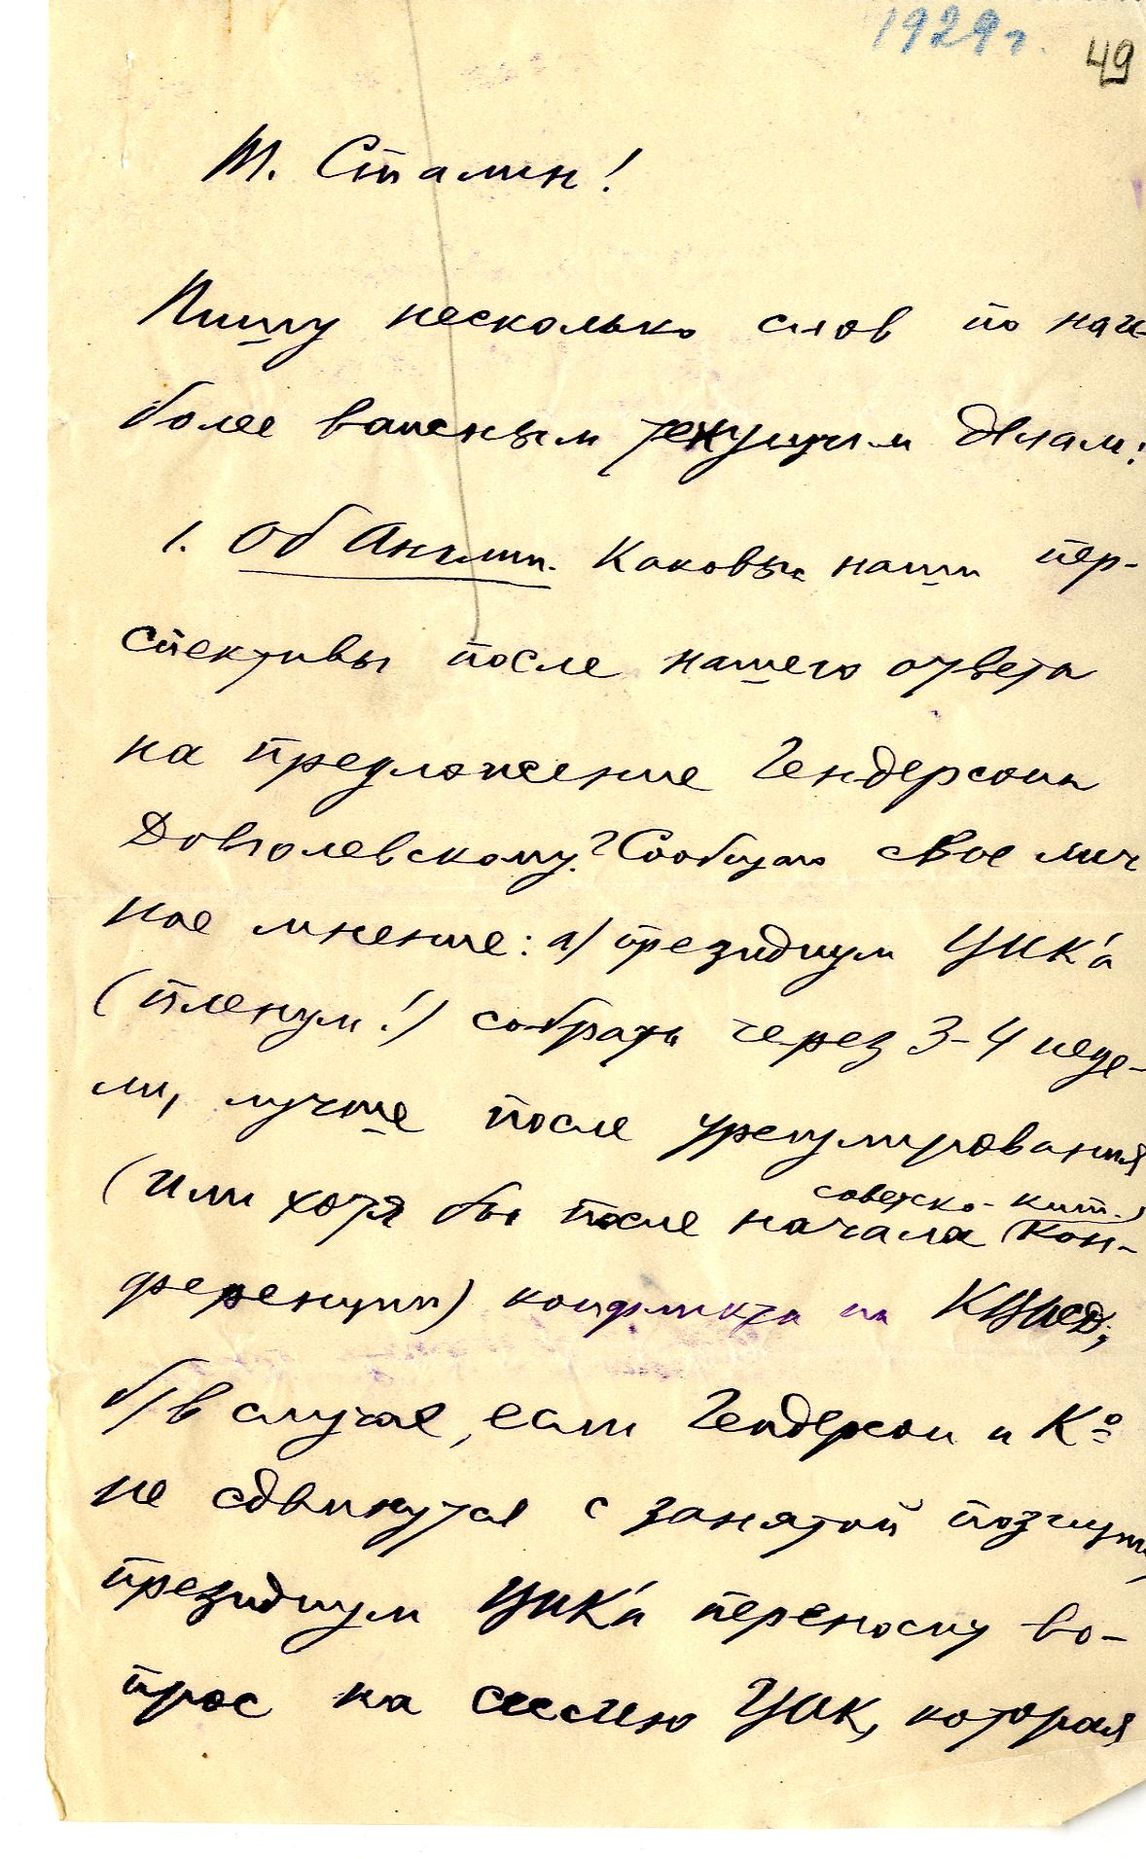 1929 г.
49
Т. Сталин!
Пишу несколько слов по наи-
более важным текущим делам:
1. Об Англии. Каковы наши пер-
спективы после нашего ответа
на предложение Гендерсона
Довгалевскому? Сообщаю свое лич
ное мнение: а) президиум ЦИК'а
(пленум!) собрать через 3-4 неде-
ли, лучше после урегулирования
(или хотя бы после начала советско-кит. кон-
ференции) конфликта на КВжд;
б) в случае, если Гендерсон и Кº
не сдвинутся с занятой позиции,
президиум ЦИК'а перенесу во-
прос на сессию ЦИК, которая